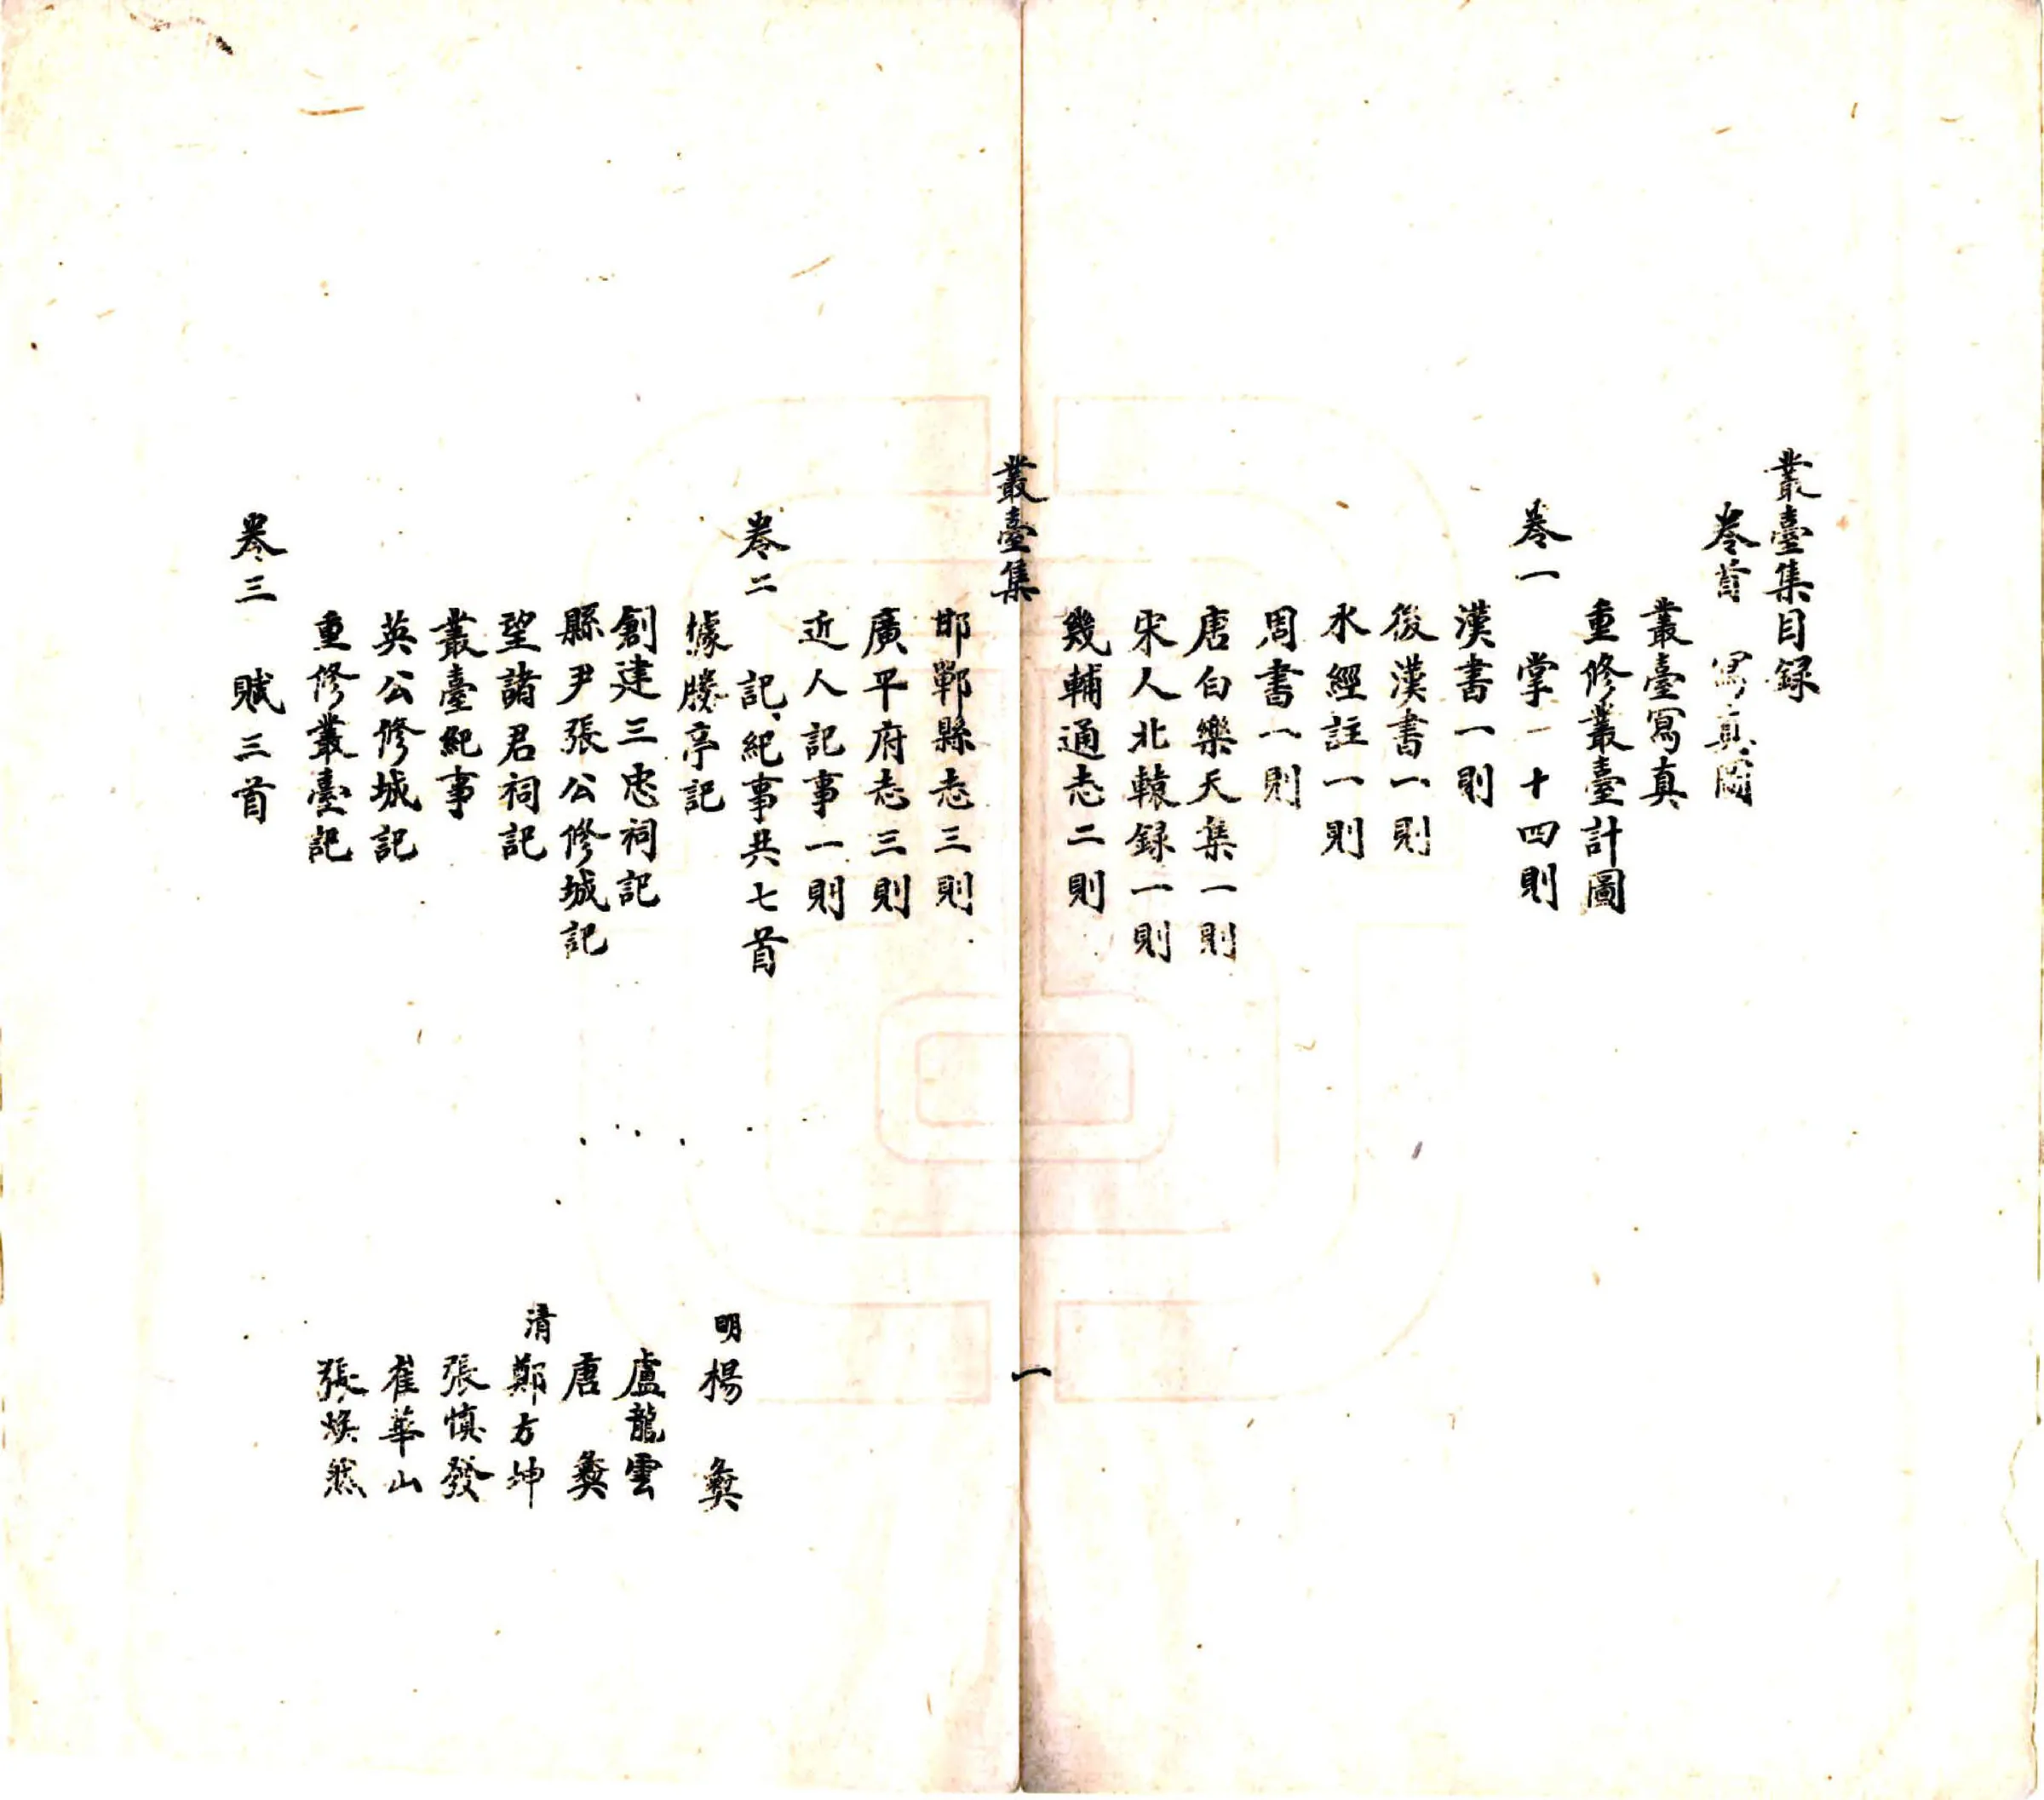 叢臺集目録
卷首 寫真圖
叢臺寫真
重修叢臺計圖
卷一 掌一十四則
漢書一則
後漢書一則
水經註一則
周書一則
唐白樂天集一則
宋人北轅録一則
幾輔通志二則
叢臺集 一
邯鄲縣志三則
廣平府志三則
近人記事一則
卷二 記、紀事共七首
據勝亭記 明 楊彝
創建三忠祠記 盧龍雲
縣尹張公修城記 唐彝
望諸君祠記 清 鄭方坤
叢臺紀事 張慎發
英公修城記 崔華山
重修叢臺記 張煥然
卷三 賦三首